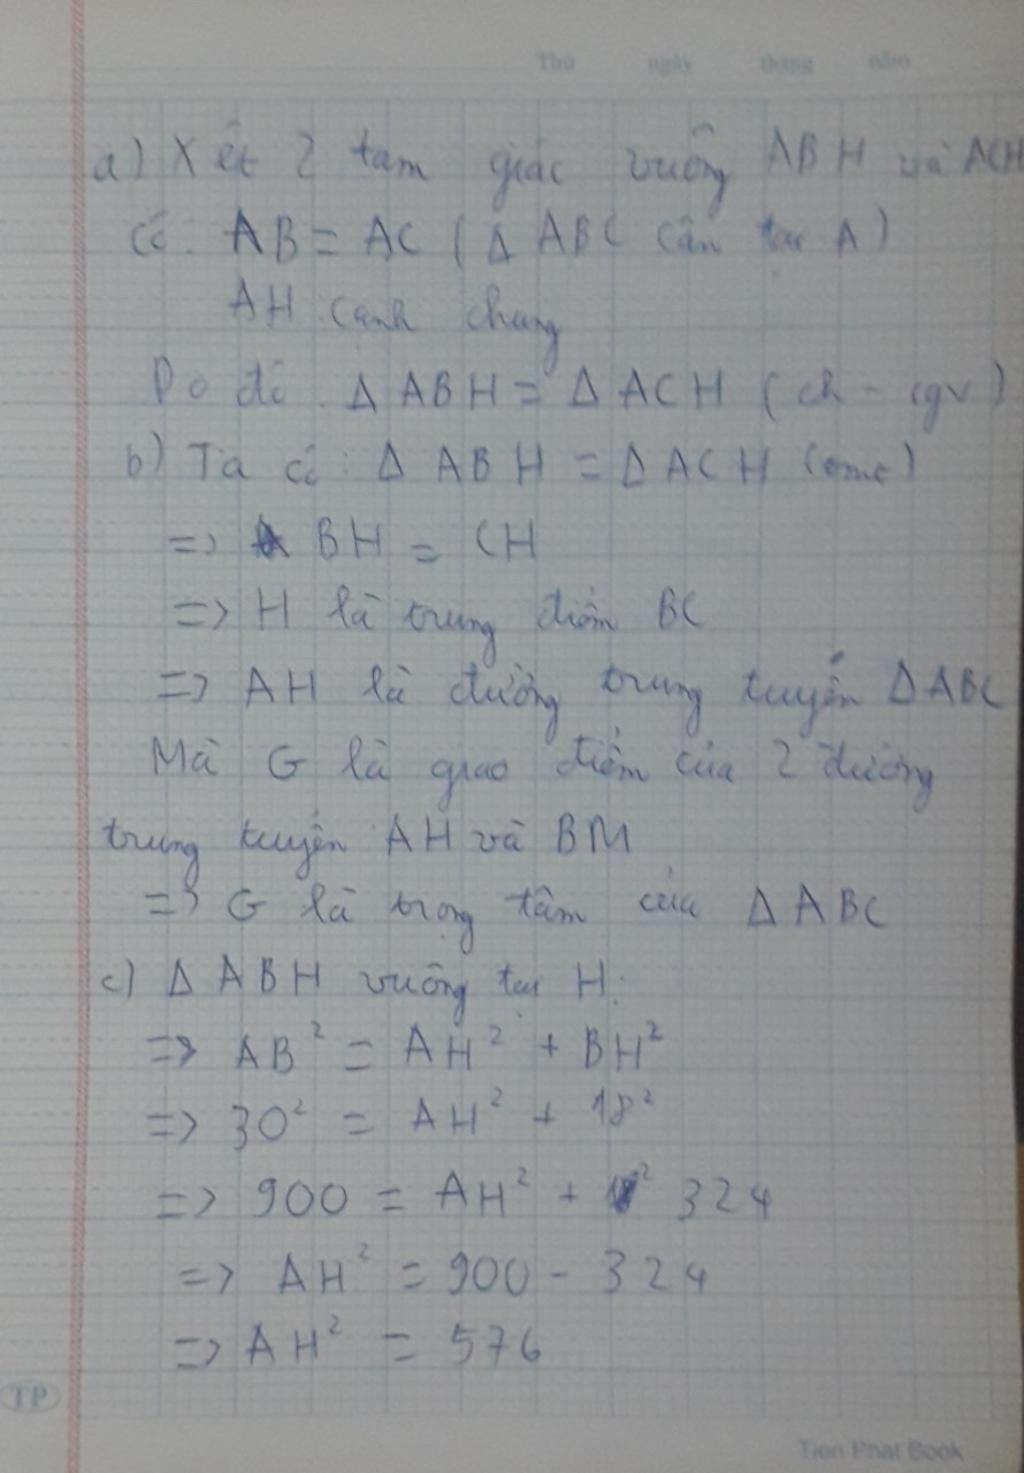 Thứ ngày tháng năm
a) Xét 2 tam giác vuông ABH và ACH
Có: AB = AC ( Δ ABC cân tại A )
AH cạnh chung
Do đó: Δ ABH = Δ ACH ( ch - cgv )
b) Ta có: Δ ABH = Δ ACH (cmt)
=> BH = CH
=> H là trung điểm BC
=> AH là đường trung tuyến Δ ABC
Mà G là giao điểm của 2 đường
trung tuyến AH và BM
=> G là trọng tâm của Δ ABC
c) Δ ABH vuông tại H:
=> AB² = AH² + BH²
=> 30² = AH² + 18²
=> 900 = AH² + 324
=> AH² = 900 - 324
=> AH² = 576
TP
Tien Phat Book